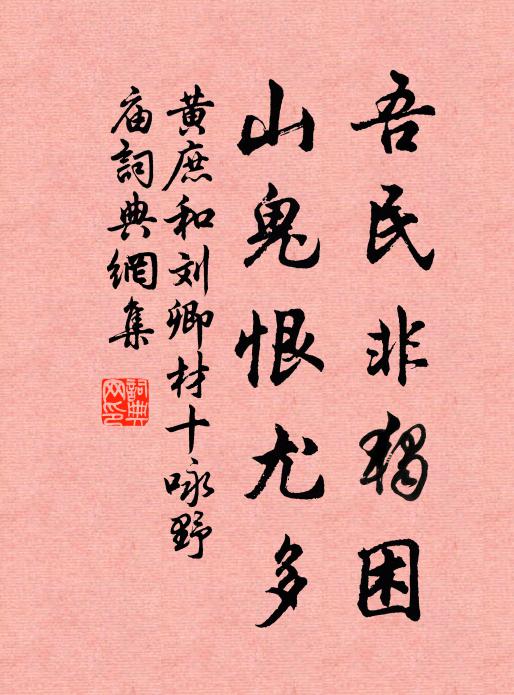 吾民非独困
山鬼恨尤多
黄庶和刘卿材十咏野
庙詞典網集
詞典
网印